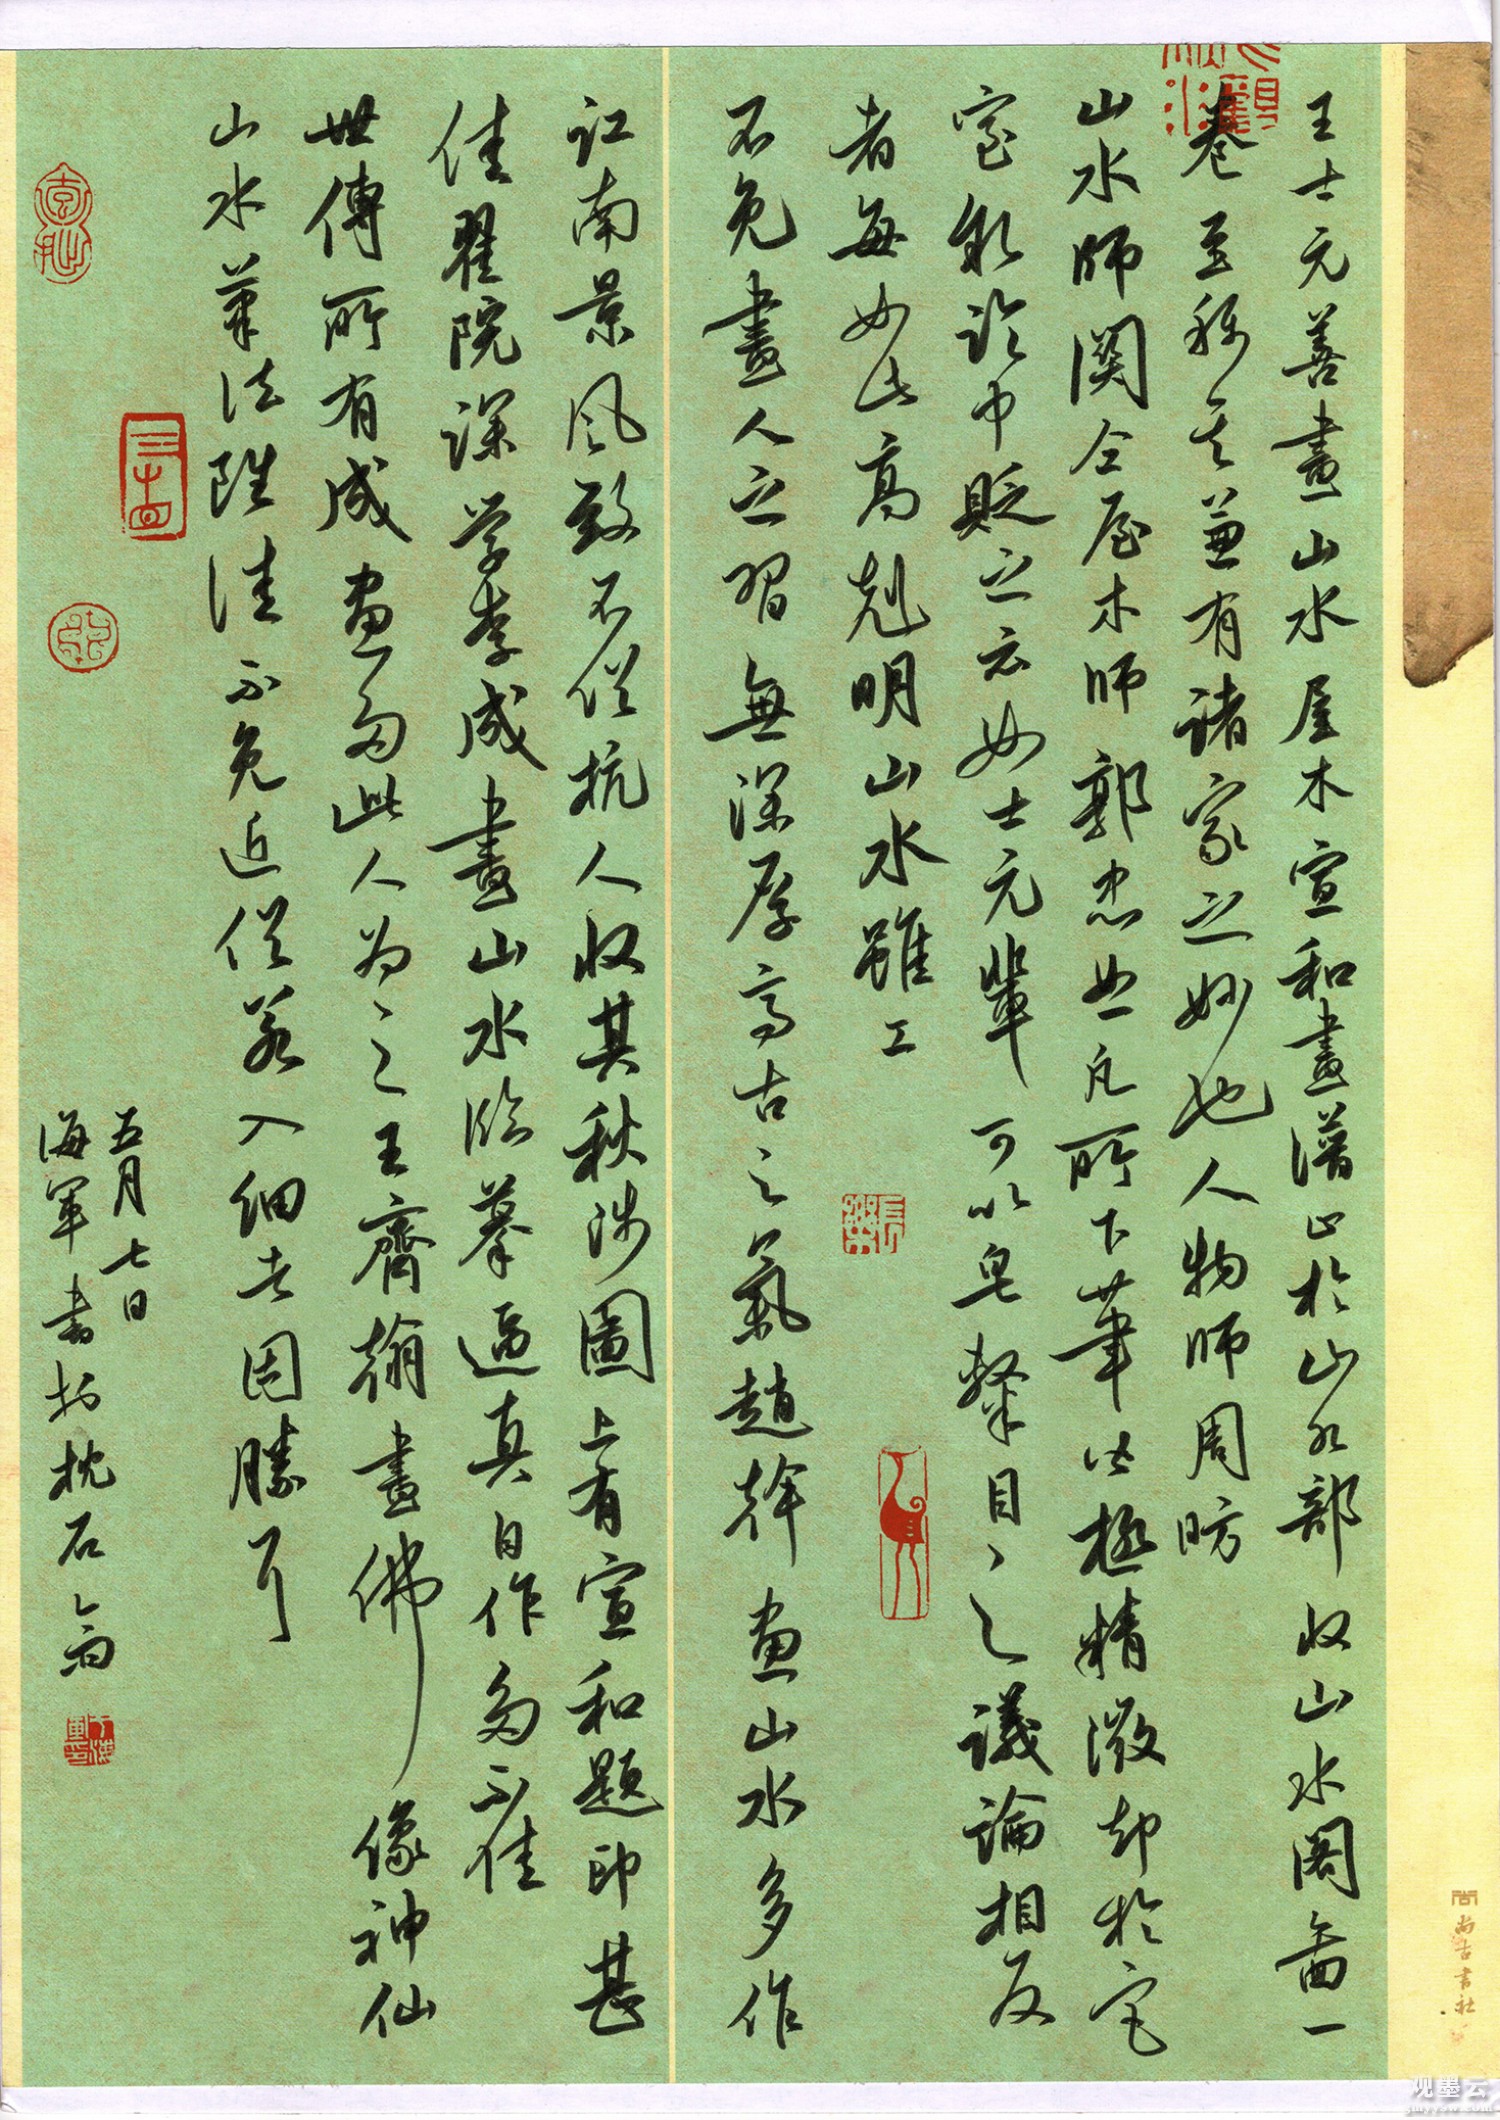 王士元善畫山水屋木宣和畫譜止於山水部收山水閣圖一
卷至稱其兼有諸家之妙也人物師周昉
山水師関仝屋木師郭忠恕凡所下筆皆極精微却於宮
室敘論中貶之云如士元輩可以皂隸目之議論相反
者每如此高尅明山水雖工
不免畫人之習無深厚高古之氣趙幹畫山水多作
江南景風致不俗杭人收其秋涉圖上有宣和題印甚
佳翟院深学李成畫山水臨摹逼真自作多不佳
世傳所有成畫多此人為之王齊翰畫佛像神仙
山水筆法雖佳不免近俗若入細者固勝耳
五月七日
海軍書於枕石齋
尚古書社
观墨云